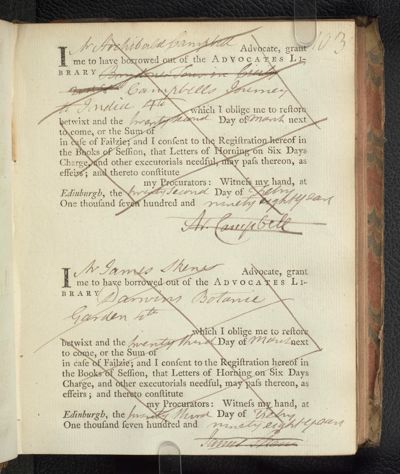 103
I Mr Archibald Campbell Advocate, grant
me to have borrowed out of the ADVOCATES LI-
BRARY
Campbells Journey
to India 4to which I oblige me to restore
betwixt and the twenty second Day of March next
to come, or the Sum of
in case of Failzie; and I consent to the Registration hereof in
the Books of Session, that Letters of Horning on Six Days
Charge, and other executorials needful, may pass thereon, as
effeirs; and thereto constitute
my Procurators: Witness my hand, at
Edinburgh, the twenty second Day of Febry
One thousand seven hundred and ninety eight years
Ar. Campbell
I Mr James Skene Advocate, grant
me to have borrowed out of the ADVOCATES LI-
BRARY Darwins Botanic
Garden 4to
which I oblige me to restore
betwixt and the twenty third Day of March next
to come, or the Sum of
in case of Failzie; and I consent to the Registration hereof in
the Books of Session, that Letters of Horning on Six Days
Charge, and other executorials needful, may pass thereon, as
effeirs; and thereto constitute
my Procurators: Witness my hand, at
Edinburgh, the twenty third Day of Febry
One thousand seven hundred and ninety eight years
James Skene